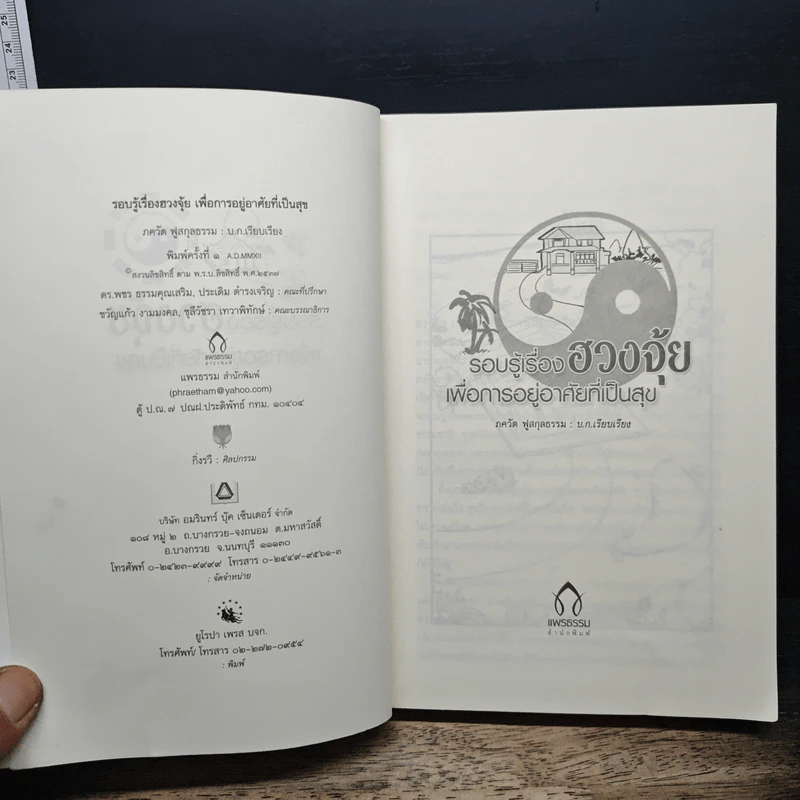 25
24
23
รอบรู้เรื่องฮวงจุ้ย เพื่อการอยู่อาศัยที่เป็นสุข
ภควัต ฟูสกุลธรรม : บ.ก.เรียบเรียง
พิมพ์ครั้งที่ ๑ A.D.MMXII
©สงวนลิขสิทธิ์ ตาม พ.ร.บ.ลิขสิทธิ์ พ.ศ.๒๕๓๗
ดร.พชร ธรรมคุณเสริม, ประเดิม ดำรงเจริญ : คณะที่ปรึกษา
ขวัญแก้ว งามมงคล, ชุลีวัชรา เทวาพิทักษ์ : คณะบรรณาธิการ
แพรธรรม
สำนักพิมพ์
แพรธรรม สำนักพิมพ์
(phraetham@yahoo.com)
ตู้ ป.ณ.๗ ปณฝ.ประดิพัทธ์ กทม. ๑๐๔๐๔
กิ่งรวี : ศิลปกรรม
บริษัท อมรินทร์ บุ๊ค เซ็นเตอร์ จำกัด
๑๐๘ หมู่ ๒ ถ.บางกรวย-จงถนอม ต.มหาสวัสดิ์
อ.บางกรวย จ.นนทบุรี ๑๑๑๓๐
โทรศัพท์ ๐-๒๔๒๓-๙๙๙๙ โทรสาร ๐-๒๔๔๙-๙๕๖๑-๓
: จัดจำหน่าย
ยูโรปา เพรส บจก.
โทรศัพท์/ โทรสาร ๐๒-๒๗๒-๐๙๕๔
: พิมพ์
รอบรู้เรื่อง ฮวงจุ้ย
เพื่อการอยู่อาศัยที่เป็นสุข
ภควัต ฟูสกุลธรรม : บ.ก.เรียบเรียง
แพรธรรม
สำนักพิมพ์